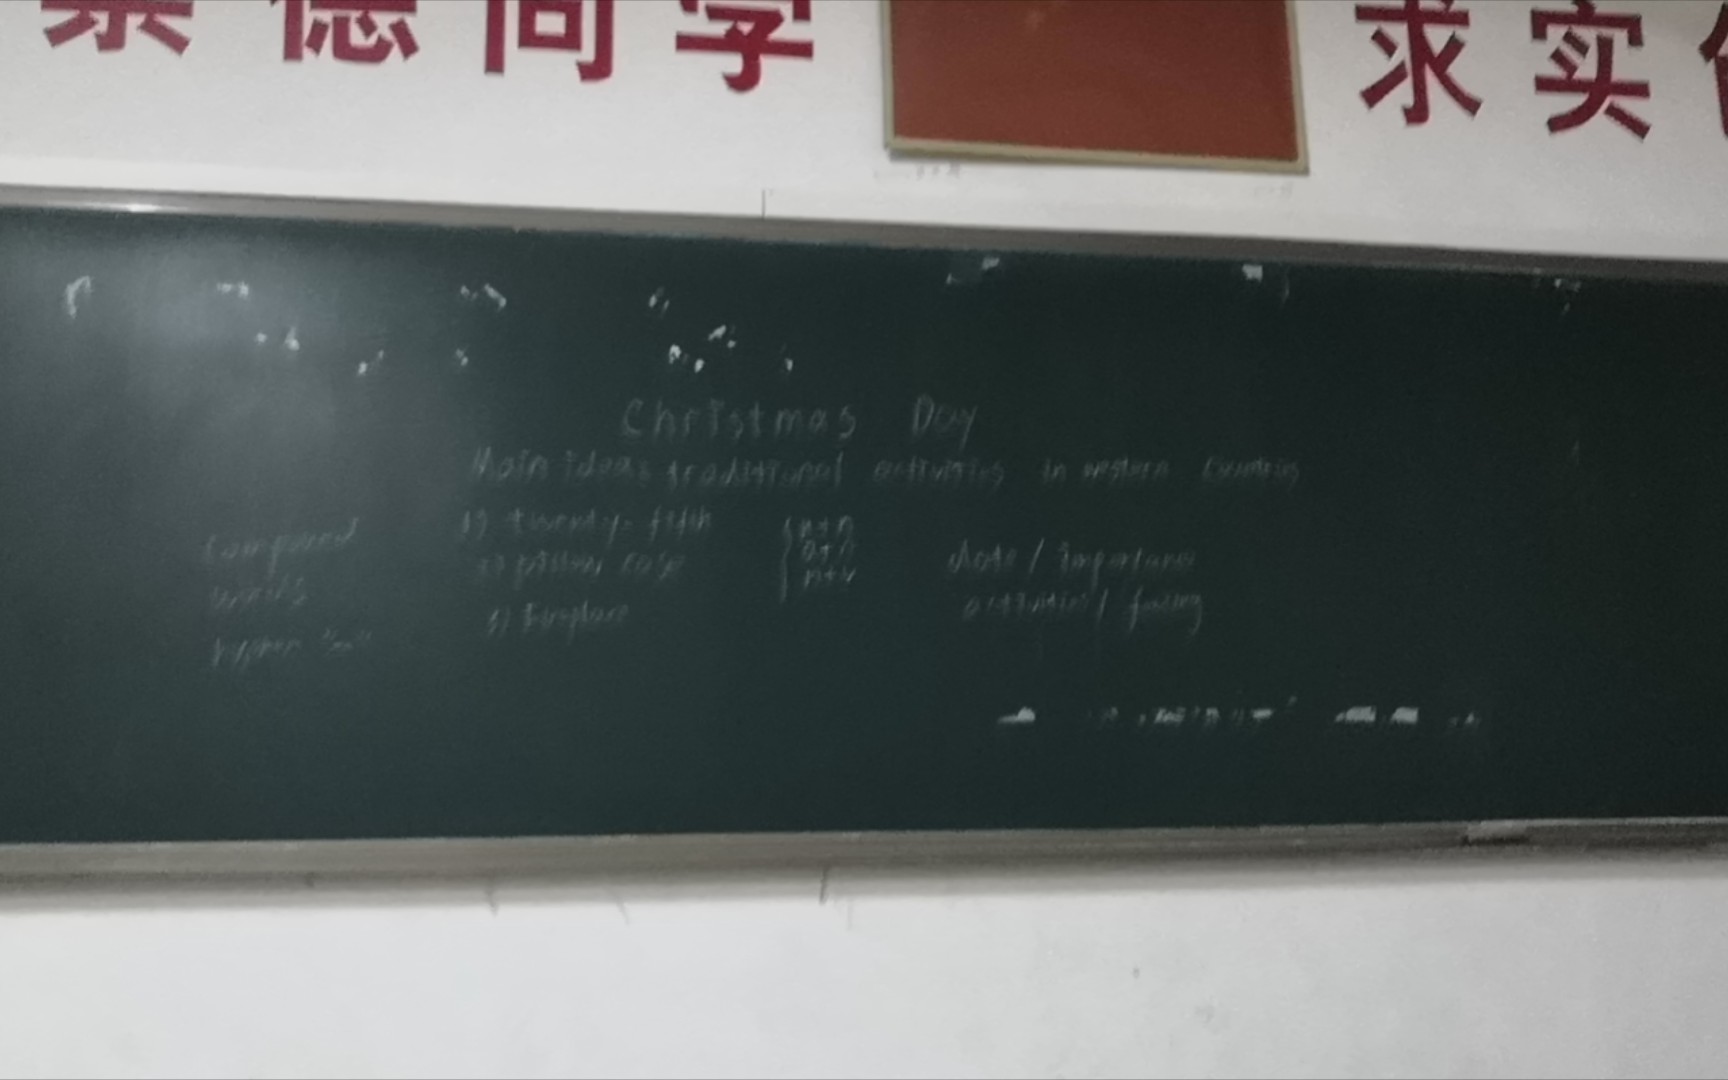 德尚学 求实
Christmas Day
Main idea: traditional activities in western countries
compound
words
hyphen "—"
1) twenty-fifth
2) pillow case
3) fireplace
n+n
a+n
n+v
date / importance
activities / feeling